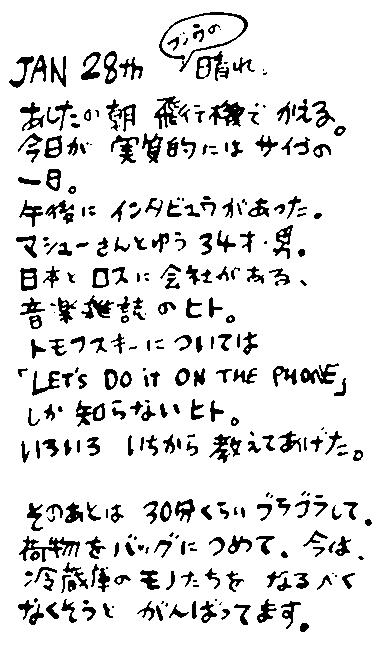 フツウの
JAN 28th 晴れ。
あしたの朝 飛行機で かえる。
今日が 実質的には サイゴの
一日。
午後に インタビュウがあった。
マシューさんとゆう 34才・男。
日本と ロスに 会社がある、
音楽雑誌 のヒト。
トモフスキーに ついては
「LET'S DO iT ON THE PHONE」
しか 知らないヒト。
いろいろ いちから 教えてあげた。
そのあとは 30分くらい ブラブラして。
荷物を バッグに つめて。今は、
冷蔵庫の モノたちを なるべく
なくそうと がんばってます。